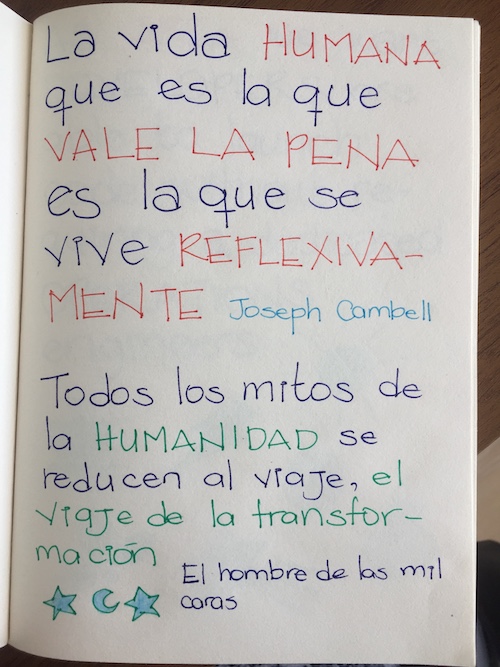 La vida HUMANA
que es la que
VALE LA PENA
es la que se
vive REFLEXIVA-
MENTE Joseph Cambell
Todos los mitos de
la HUMANIDAD se
reducen al viaje, el
viaje de la transfor-
mación
El hombre de las mil
caras